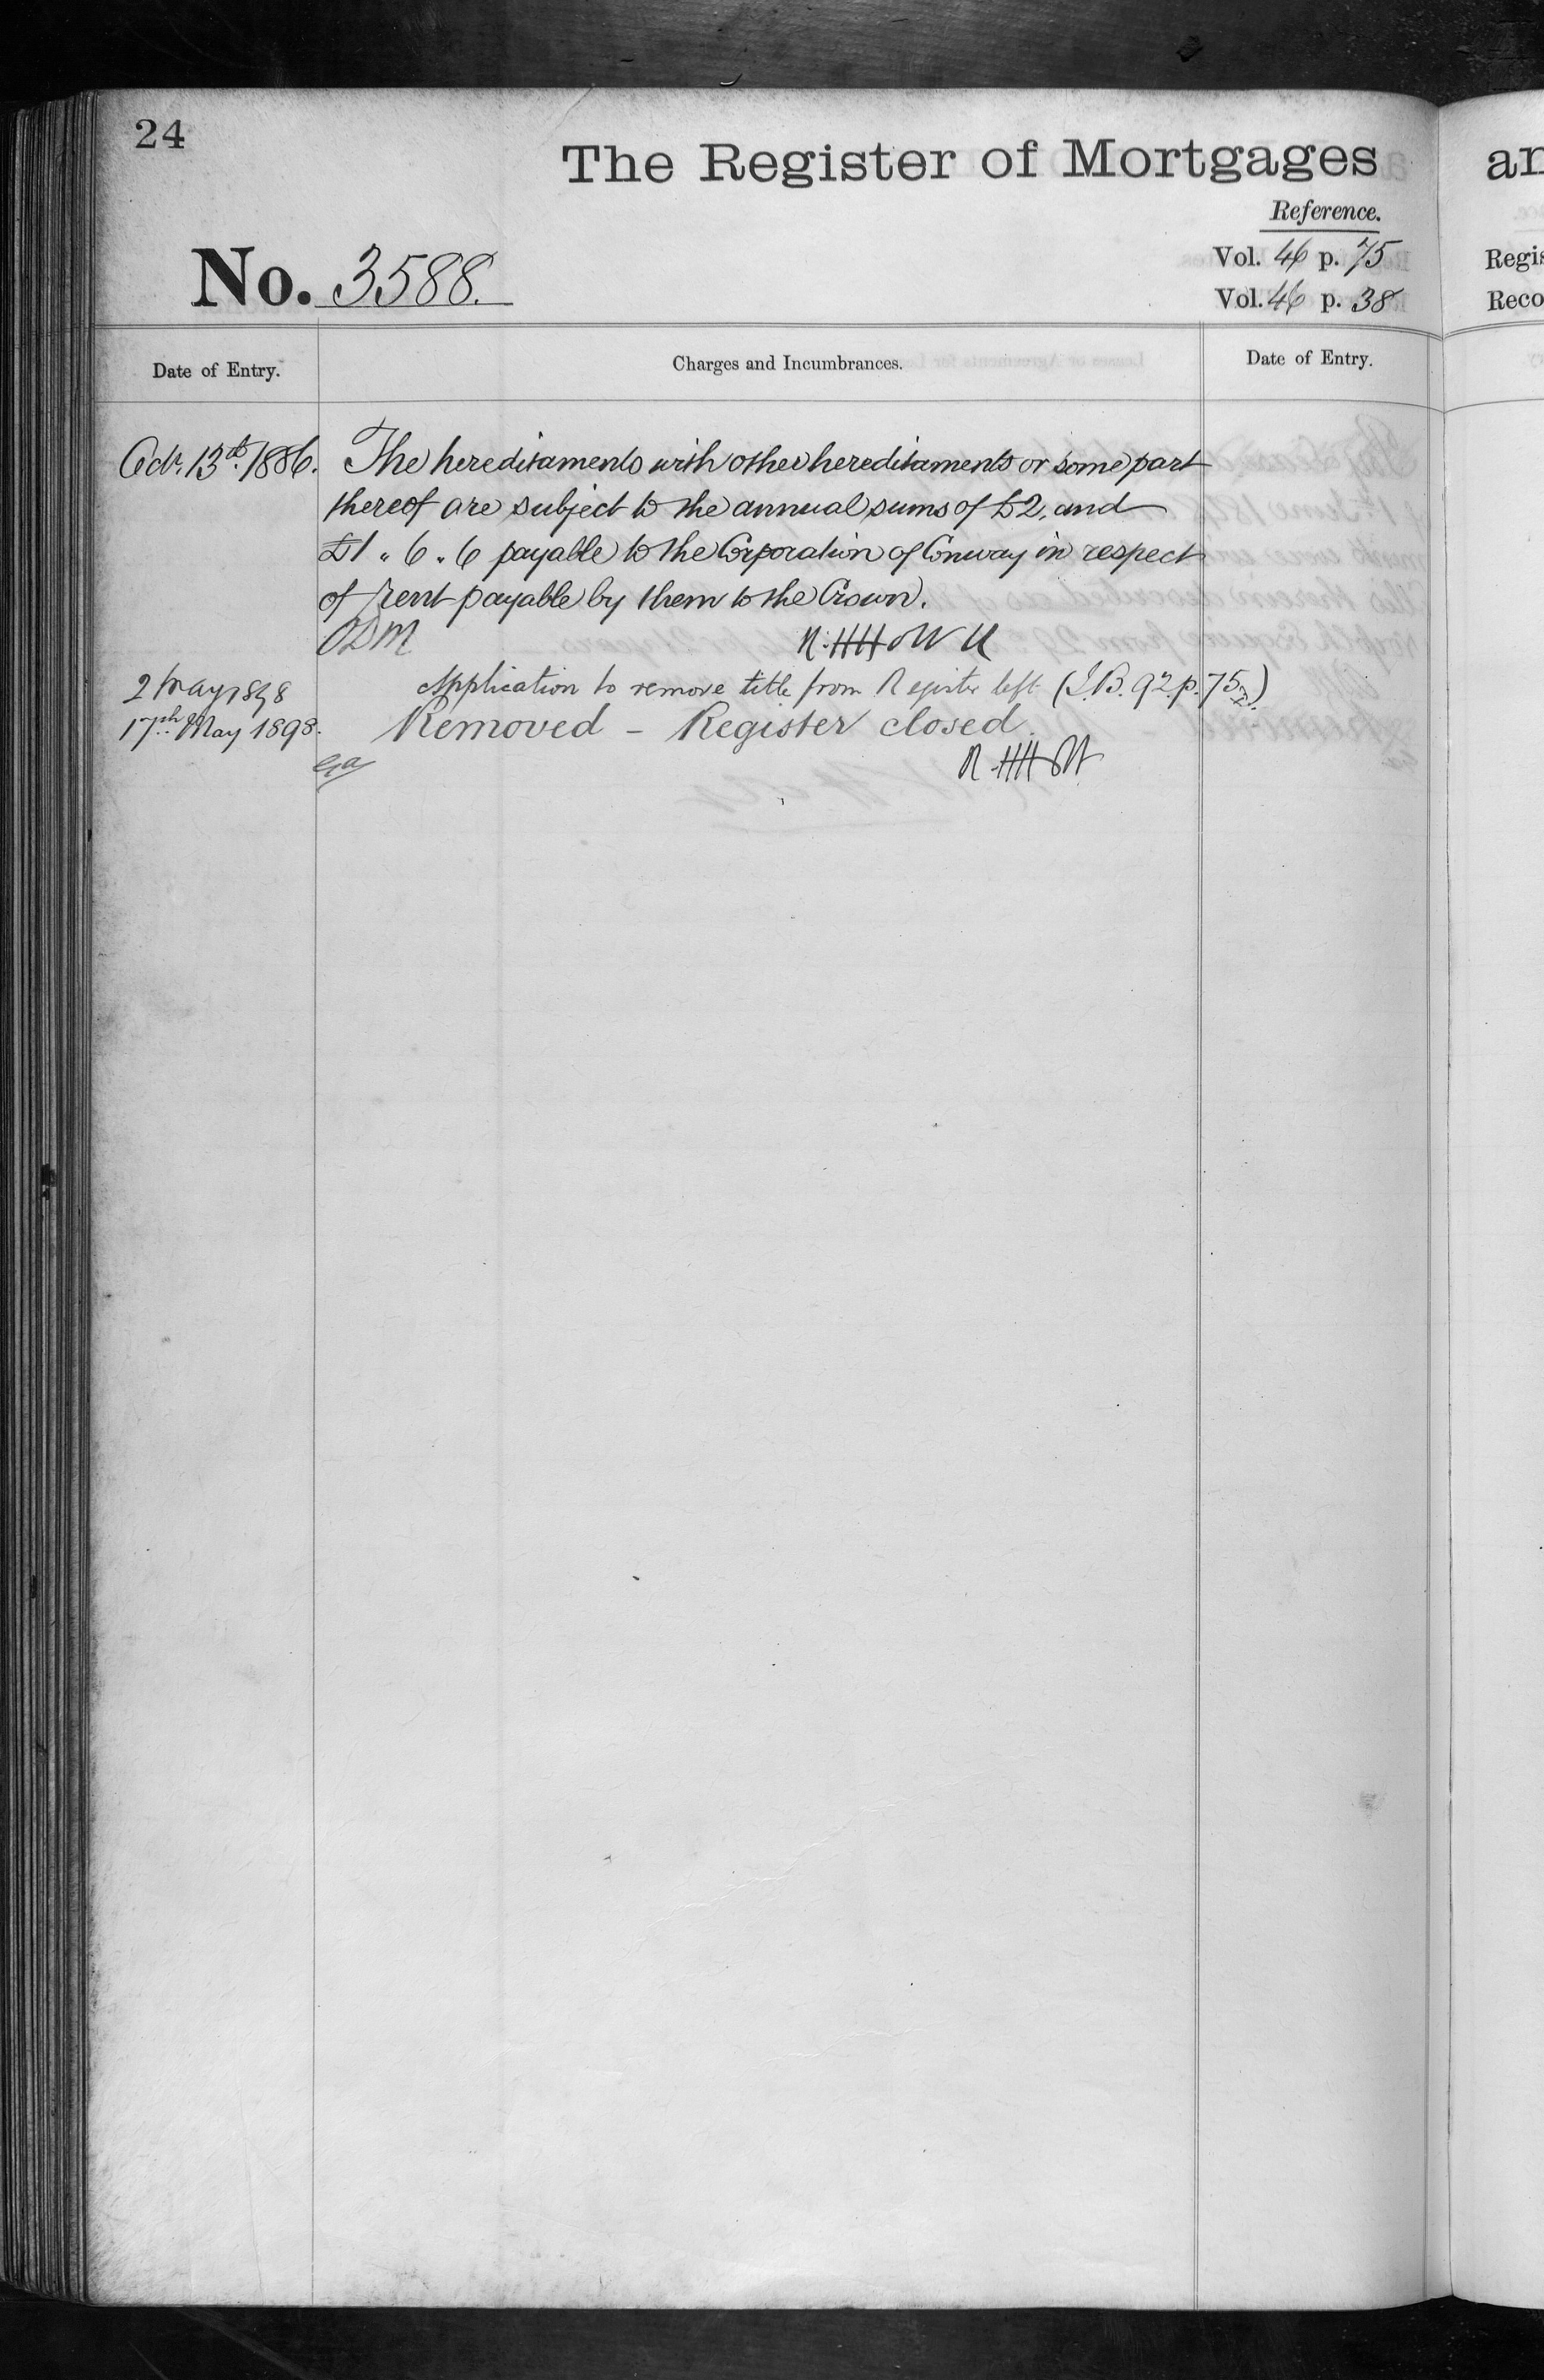 24
The Register of Mortgages
Reference.
No. 3588.
Vol. 46 p. 75
Vol. 46 p. 38
Date of Entry.
Charges and Incumbrances.
Date of Entry.
Oct. 13th 1886. The hereditaments with other hereditaments or some part
thereof are subject to the annual sums of £2, and
£1 " 6 " 6 payable to the Corporation of Conway in respect
of rent payable by them to the Crown.
ODM
2 May 1898 Application to remove title from Register left (I.B. 92 p. 75)
17th May 1898. Removed – Register closed.
an
Regis
Reco